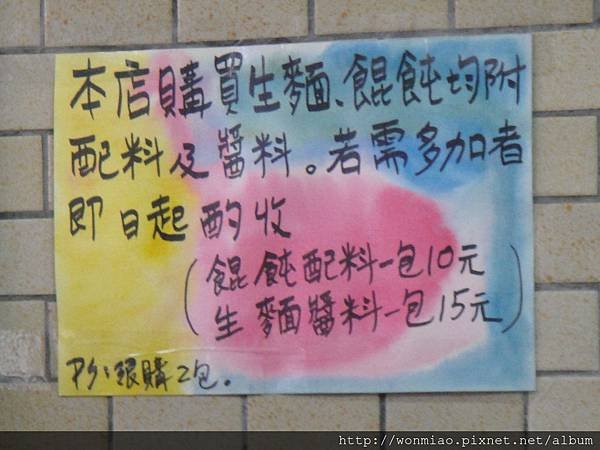 本店購買生麵、餛飩均附
配料及醬料。若需多加者
即日起酌收
(餛飩配料一包10元
生麵醬料一包15元)
PS:限購2包。
http://wonmiao.pixnet.net/album